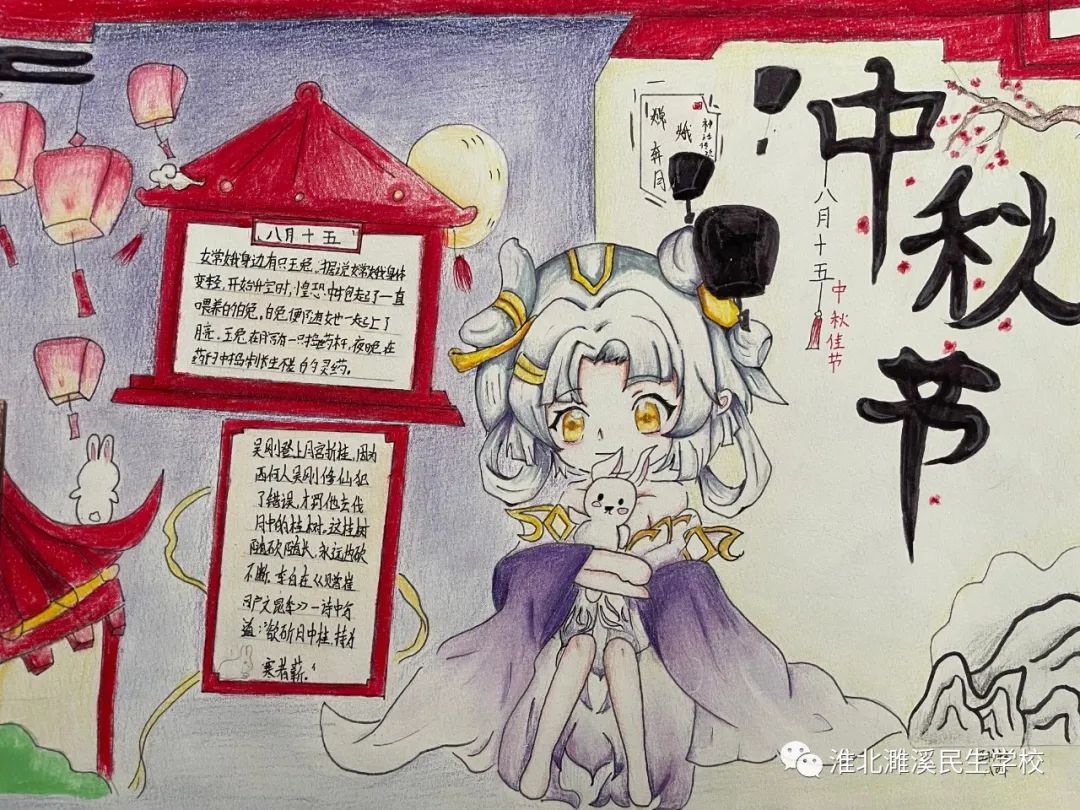 中秋节
八月十五
中秋佳节
嫦娥奔月
神话传说
八月十五
嫦娥身边有只玉兔。据说嫦娥身体
变轻,开始升空时,惶恐中抱起了一直
喂养的白兔,白兔便随她一起上了
月亮。玉兔在月宫有一只捣药杵,夜晚在
药臼中捣制长生不老的灵药。
吴刚登上月宫折桂,因为
西何人吴刚修仙犯
了错误,才罚他去伐
月中的桂树。这桂树
随砍随长,永远也砍
不断。李白在《赠崔
司户文昆季》一诗中写
道:"欲斫月中桂,持为
寒者薪。"
淮北濉溪民生学校